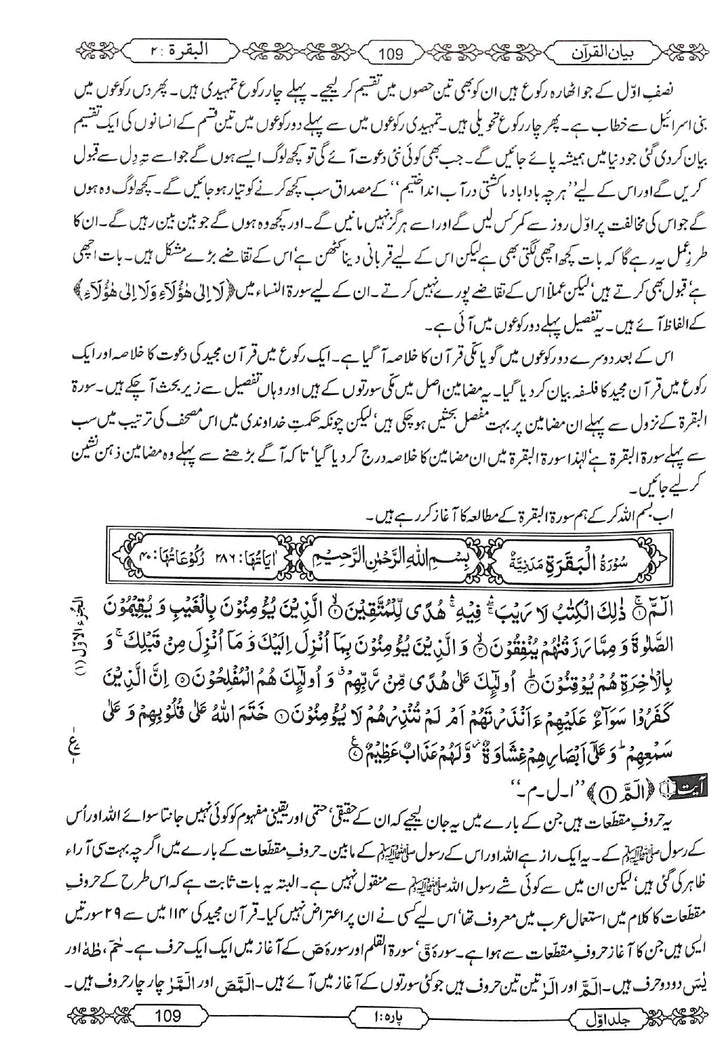 بیان القرآن 109 البقرۃ : ۲
نصفِ اوّل کے جو اٹھارہ رکوع ہیں ان کو بھی تین حصوں میں تقسیم کر لیجیے۔ پہلے چار رکوع تمہیدی ہیں۔ پھر دس رکوعوں میں
بنی اسرائیل سے خطاب ہے۔ پھر چار رکوع تحویلی ہیں۔ تمہیدی رکوعوں میں سے پہلے دو رکوعوں میں تین قسم کے انسانوں کی ایک تقسیم
بیان کر دی گئی جو دنیا میں ہمیشہ پائے جائیں گے۔ جب بھی کوئی نئی دعوت آئے گی تو کچھ لوگ ایسے ہوں گے جو اسے تہِ دل سے قبول
کریں گے اور اس کے لیے ’’ہرچہ بادا باد ما کشتی در آب انداختیم‘‘ کے مصداق سب کچھ کرنے کو تیار ہو جائیں گے۔ کچھ لوگ وہ ہوں
گے جو اس کی مخالفت پر اوّل روز سے کمر کس لیں گے اور اسے ہرگز نہیں مانیں گے۔ اور کچھ وہ ہوں گے جو بین بین رہیں گے۔ ان کا
طرزِ عمل یہ رہے گا کہ بات کچھ اچھی لگتی بھی ہے لیکن اس کے لیے قربانی دینا کٹھن ہے‘ اس کے تقاضے بڑے مشکل ہیں۔ بات اچھی
ہے‘ قبول بھی کرتے ہیں‘ لیکن عملاً اس کے تقاضے پورے نہیں کرتے۔ ان کے لیے سورۃ النساء میں ﴿لَا اِلٰى هٰٓؤُلَآءِ وَلَا اِلٰى هٰٓؤُلَآءِ﴾
کے الفاظ آئے ہیں۔ یہ تفصیل پہلے دو رکوعوں میں آئی ہے۔
اس کے بعد دوسرے دو رکوعوں میں گویا مکّی قرآن کا خلاصہ آ گیا ہے۔ ایک رکوع میں قرآن مجید کی دعوت کا خلاصہ اور ایک
رکوع میں قرآن مجید کا فلسفہ بیان کر دیا گیا۔ یہ مضامین اصل میں مکّی سورتوں کے ہیں اور وہاں تفصیل سے زیر بحث آ چکے ہیں۔ سورۃ
البقرۃ کے نزول سے پہلے ان مضامین پر بہت مفصل بحثیں ہو چکی ہیں‘ لیکن چونکہ حکمتِ خداوندی میں اس مصحف کی ترتیب میں سب
سے پہلے سورۃ البقرۃ ہے‘ لہٰذا سورۃ البقرۃ میں ان مضامین کا خلاصہ درج کر دیا گیا‘ تاکہ آگے بڑھنے سے پہلے وہ مضامین ذہن نشین
کر لیے جائیں۔
اب بسم اللہ کر کے ہم سورۃ البقرۃ کے مطالعہ کا آغاز کر رہے ہیں۔
سُوْرَةُ الْبَقَرَةِ مَدَنِيَّةٌ بِسْمِ اللهِ الرَّحْمٰنِ الرَّحِيْمِ اٰيَاتُهَا: ۲۸۶ رُكُوْعَاتُهَا: ۴۰
الٓمّٓ ۚ﴿۱﴾ ذٰلِكَ الْكِتٰبُ لَا رَيْبَ ۛۚ فِيْهِ ۛۚ هُدًى لِّلْمُتَّقِيْنَ ﴿۲﴾ الَّذِيْنَ يُؤْمِنُوْنَ بِالْغَيْبِ وَيُقِيْمُوْنَ
الصَّلٰوةَ وَمِمَّا رَزَقْنٰهُمْ يُنْفِقُوْنَ ﴿۳﴾ وَالَّذِيْنَ يُؤْمِنُوْنَ بِمَآ اُنْزِلَ اِلَيْكَ وَمَآ اُنْزِلَ مِنْ قَبْلِكَ ۚ وَ
بِالْاٰخِرَةِ هُمْ يُوْقِنُوْنَ ﴿۴﴾ اُولٰٓئِكَ عَلٰى هُدًى مِّنْ رَّبِّهِمْ ۗ وَاُولٰٓئِكَ هُمُ الْمُفْلِحُوْنَ ﴿۵﴾ اِنَّ الَّذِيْنَ
كَفَرُوْا سَوَآءٌ عَلَيْهِمْ ءَاَنْذَرْتَهُمْ اَمْ لَمْ تُنْذِرْهُمْ لَا يُؤْمِنُوْنَ ﴿۶﴾ خَتَمَ اللهُ عَلٰى قُلُوْبِهِمْ وَعَلٰى
سَمْعِهِمْ ؕ وَعَلٰٓى اَبْصَارِهِمْ غِشَاوَةٌ ۫ وَّلَهُمْ عَذَابٌ عَظِيْمٌ ﴿۷﴾
الجزء الاوّل (۱)
ع
آیت ۱ ﴿الٓمّٓ ﴿۱﴾﴾ ’’ا۔ل۔م۔‘‘
یہ حروفِ مقطعات ہیں جن کے بارے میں یہ جان لیجیے کہ ان کے حقیقی‘ حتمی اور یقینی مفہوم کو کوئی نہیں جانتا سوائے اللہ اور اُس
کے رسول ﷺ کے۔ یہ ایک راز ہے اللہ اور اس کے رسول ﷺ کے مابین۔ حروفِ مقطعات کے بارے میں اگرچہ بہت سی آراء
ظاہر کی گئی ہیں‘ لیکن ان میں سے کوئی شے رسول اللہ ﷺ سے منقول نہیں ہے۔ البتہ یہ بات ثابت ہے کہ اس طرح کے حروفِ
مقطعات کا کلام میں استعمال عرب میں معروف تھا‘ اس لیے کسی نے ان پر اعتراض نہیں کیا۔ قرآن مجید کی ۱۱۴ میں سے ۲۹ سورتیں
ایسی ہیں جن کا آغاز حروفِ مقطعات سے ہوا ہے۔ سورۂ قٓ‘ سورۃ القلم اور سورۂ صٓ کے آغاز میں ایک ایک حرف ہے۔ حٰمٓ، طٰهٰ اور
يٰسٓ دو دو حرف ہیں۔ الٓمّٓ اور الٓرٰ تین تین حروف ہیں جو کئی سورتوں کے آغاز میں آئے ہیں۔ الٓمّٓصٓ اور الٓمّٓرٰ چار چار حروف ہیں۔
جلد اوّل پارہ : ۱ 109